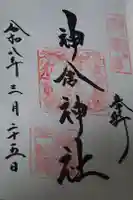 奉拝
神倉神社
令和八年三月二十五日